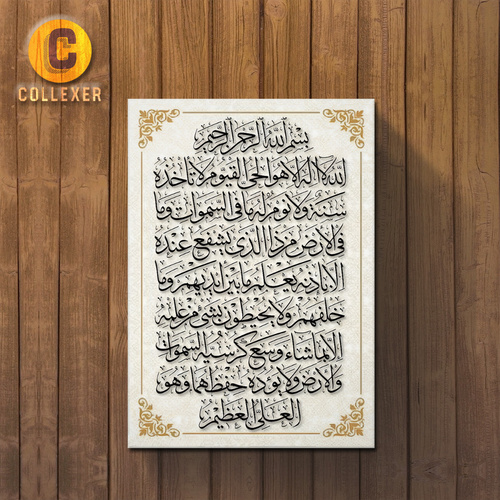 C
COLLEXER
بسم الله الرحمن الرحيم
الله لا اله الا هو الحي القيوم لا تاخذه
سنة ولا نوم له ما في السموات وما
في الارض من ذا الذي يشفع عنده
الا باذنه يعلم ما بين ايديهم وما
خلفهم ولا يحيطون بشيء من علمه
الا بما شاء وسع كرسيه السموات
والارض ولا يوده حفظهما وهو
العلي العظيم